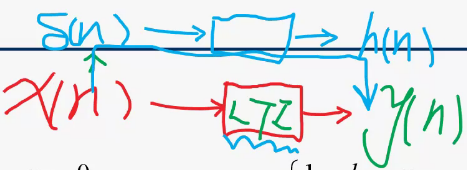 δ(n) → h(n)
x(n) → LTI → y(n)